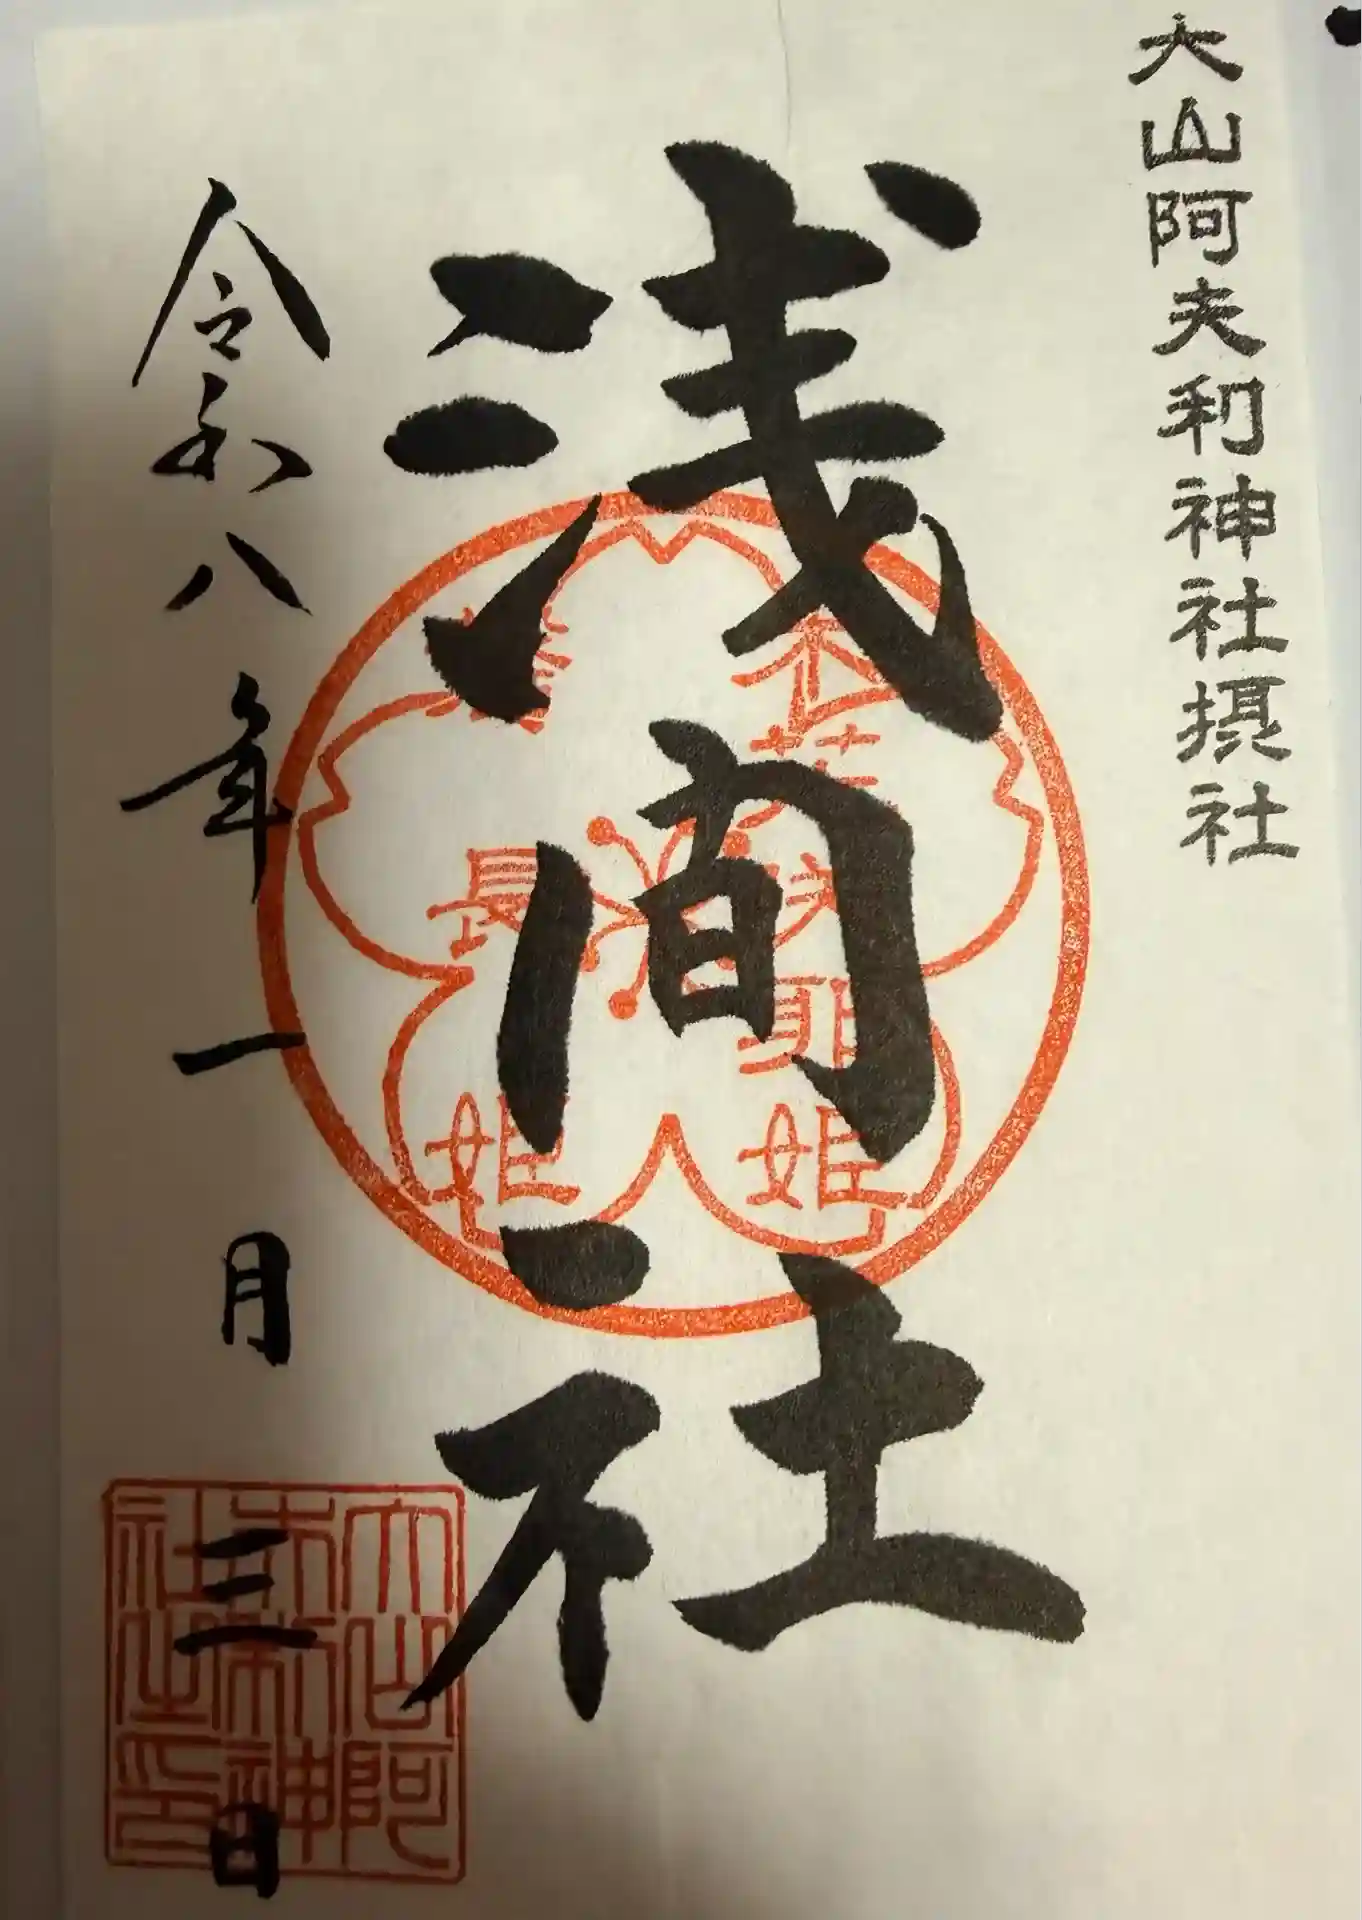 大山阿夫利神社摂社
浅间社
木花咲耶姫
磐長姫
令和八年一月三日
大山阿
夫利神
社之印